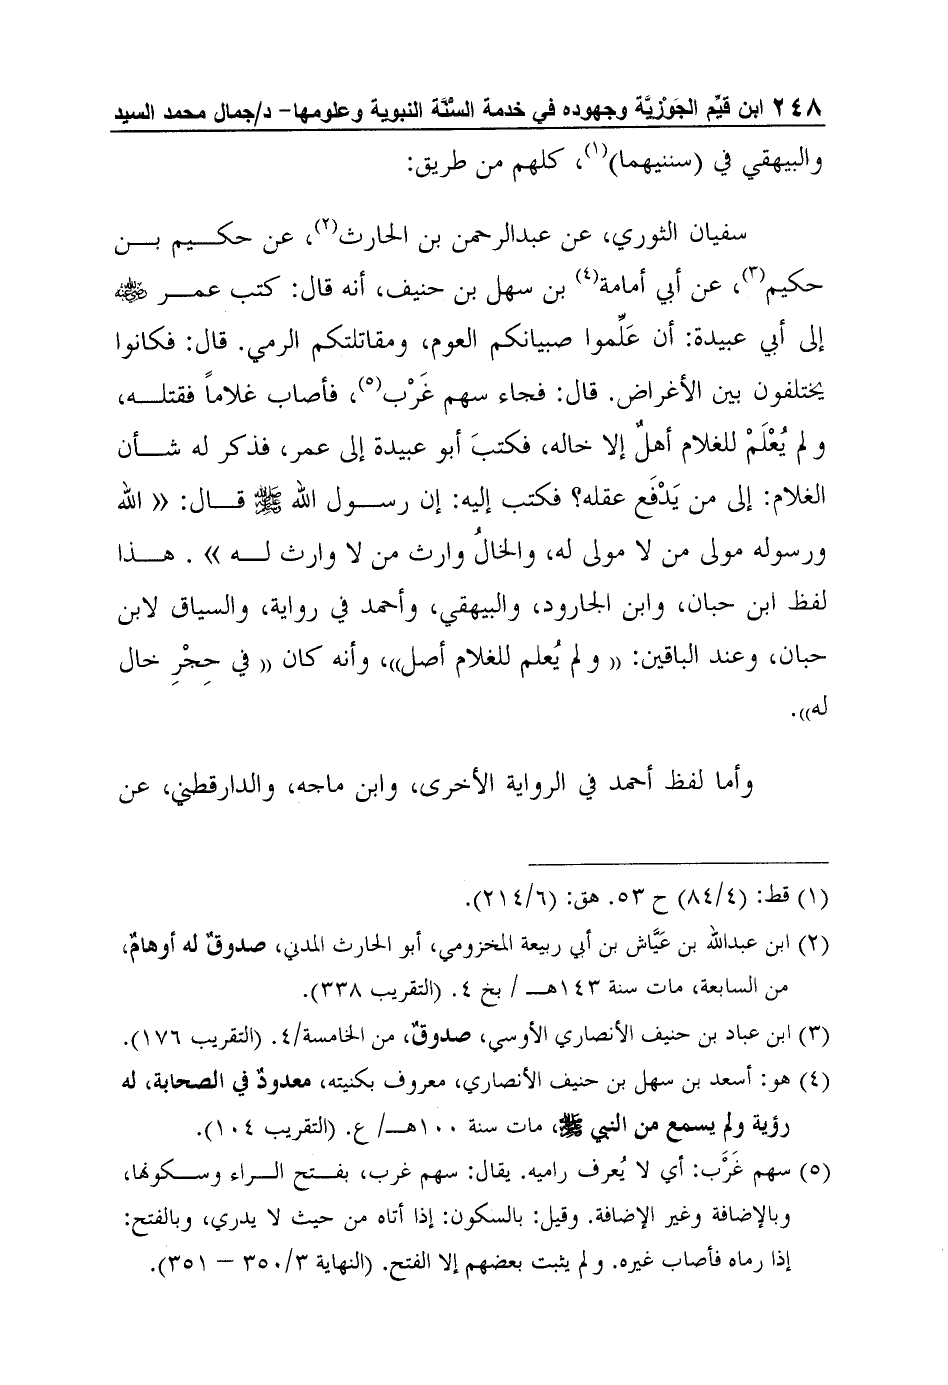 ٢٤٨ ابن قيِّم الجَوْزيَّة وجهوده في خدمة السنَّة النبوية وعلومها- د/جمال محمد السيد
والبيهقي في (سننيهما)(١)، كلهم من طريق:
سفيان الثوري، عن عبدالرحمن بن الحارث(٢)، عن حكيم بن
حكيم(٣)، عن أبي أمامة(٤) بن سهل بن حنيف، أنه قال: كتب عمر رضي الله عنه
إلى أبي عبيدة: أن عَلِّموا صبيانكم العوم، ومقاتلتكم الرمي. قال: فكانوا
يختلفون بين الأغراض. قال: فجاء سهم غَرْب(٥)، فأصاب غلاماً فقتله،
ولم يُعْلَمْ للغلام أهلٌ إلا خاله، فكتبَ أبو عبيدة إلى عمر، فذكر له شأن
الغلام: إلى من يَدْفَع عقله؟ فكتب إليه: إن رسول الله ﷺ قال: « الله
ورسوله مولى من لا مولى له، والخالُ وارث من لا وارث له » . هذا
لفظ ابن حبان، وابن الجارود، والبيهقي، وأحمد في رواية، والسياق لابن
حبان، وعند الباقين: « ولم يُعلم للغلام أصل»، وأنه كان « في حِجْرِ خال
له».
وأما لفظ أحمد في الرواية الأخرى، وابن ماجه، والدارقطني، عن
(١) قط: (٨٤/٤) ح ٥٣. هق: (٢١٤/٦).
(٢) ابن عبدالله بن عيَّاش بن أبي ربيعة المخزومي، أبو الحارث المدني، صدوقٌ له أوهامٌ،
من السابعة، مات سنة ١٤٣هـ / بخ ٤. (التقريب ٣٣٨).
(٣) ابن عباد بن حنيف الأنصاري الأوسي، صدوقٌ، من الخامسة/٤. (التقريب ١٧٦).
(٤) هو: أسعد بن سهل بن حنيف الأنصاري، معروف بكنيته، معدودٌ في الصحابة، له
رؤية ولم يسمع من النبي ﷺ، مات سنة ١٠٠هـ/ ع. (التقريب ١٠٤).
(٥) سهم غَرَْب: أي لا يُعرف راميه. يقال: سهم غرب، بفتح الراء وسكونها،
وبالإضافة وغير الإضافة. وقيل: بالسكون: إذا أتاه من حيث لا يدري، وبالفتح:
إذا رماه فأصاب غيره. ولم يثبت بعضهم إلا الفتح. (النهاية ٣٥٠/٣ – ٣٥١).